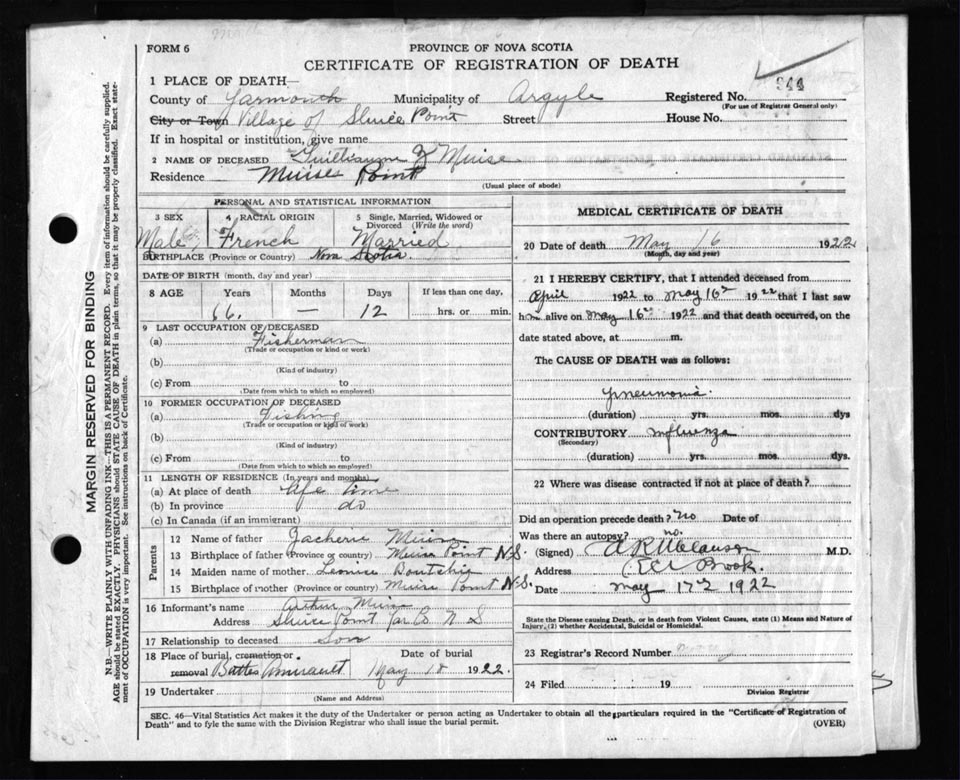 FORM 6
PROVINCE OF NOVA SCOTIA
CERTIFICATE OF REGISTRATION OF DEATH
1 PLACE OF DEATH—
County of Yarmouth Municipality of Argyle Registered No. 944
(For use of Registrar General only)
City or Town Village of Sluice Point Street House No.
If in hospital or institution, give name
2 NAME OF DECEASED Guilliaum J Muise
Residence Muise Point
(Usual place of abode)
PERSONAL AND STATISTICAL INFORMATION
3 SEX 4 RACIAL ORIGIN 5 Single, Married, Widowed or Divorced (Write the word)
Male French Married
BIRTHPLACE (Province or Country) Nova Scotia
DATE OF BIRTH (month, day and year)
8 AGE Years Months Days If less than one day,
66 — 12 hrs. or min.
9 LAST OCCUPATION OF DECEASED
(a) Fisherman
(Trade or occupation or kind or work)
(b)
(Kind of industry)
(c) From to
(Date from which to which so employed)
10 FORMER OCCUPATION OF DECEASED
(a) Fishing
(Trade or occupation or kind of work)
(b)
(Kind of industry)
(c) From to
(Date from which to which so employed)
11 LENGTH OF RESIDENCE (In years and months)
(a) At place of death Life time
(b) In province do
(c) In Canada (if an immigrant)
Parents
12 Name of father Zacherie Muise
13 Birthplace of father (Province or country) Muise Point N.S.
14 Maiden name of mother. Leonise
15 Birthplace of mother (Province or country) Muise Point N.S.
16 Informant's name Arthur Muise
Address Sluice Point Yar Co N S
17 Relationship to deceased Son
18 Place of burial, cremation or removal Buttes Amirault
Date of burial May 18 1922.
19 Undertaker
(Name and Address)
MEDICAL CERTIFICATE OF DEATH
20 Date of death May 16 1922
(Month, day and year)
21 I HEREBY CERTIFY, that I attended deceased from
April 1922 to May 16 1922 that I last saw
him alive on May 16 1922 and that death occurred, on the
date stated above, at m.
The CAUSE OF DEATH was as follows:
Pneumonia
(duration) yrs. mos. dys
CONTRIBUTORY Influenza
(Secondary)
(duration) yrs. mos. dys.
22 Where was disease contracted if not at place of death?
Did an operation precede death? no Date of
Was there an autopsy? no.
(Signed) M.D.
Address Eel Brook.
Date May 17 1922
State the Disease causing Death, or in death from Violent Causes, state (1) Means and Nature of
Injury, (2) whether Accidental, Suicidal or Homicidal.
23 Registrar's Record Number
24 Filed 19
Division Registrar
SEC. 46—Vital Statistics Act makes it the duty of the Undertaker or person acting as Undertaker to obtain all the particulars required in the "Certificate of Registration of
Death" and to fyle the same with the Division Registrar who shall issue the burial permit.
(OVER)
MARGIN RESERVED FOR BINDING
N.B.—WRITE PLAINLY WITH UNFADING INK—THIS IS A PERMANENT RECORD. Every item of information should be carefully supplied.
AGE should be stated EXACTLY. PHYSICIANS should STATE CAUSE OF DEATH in plain terms, so that it may be properly classified. Exact statement of OCCUPATION is very important. See instructions on back of Certificate.